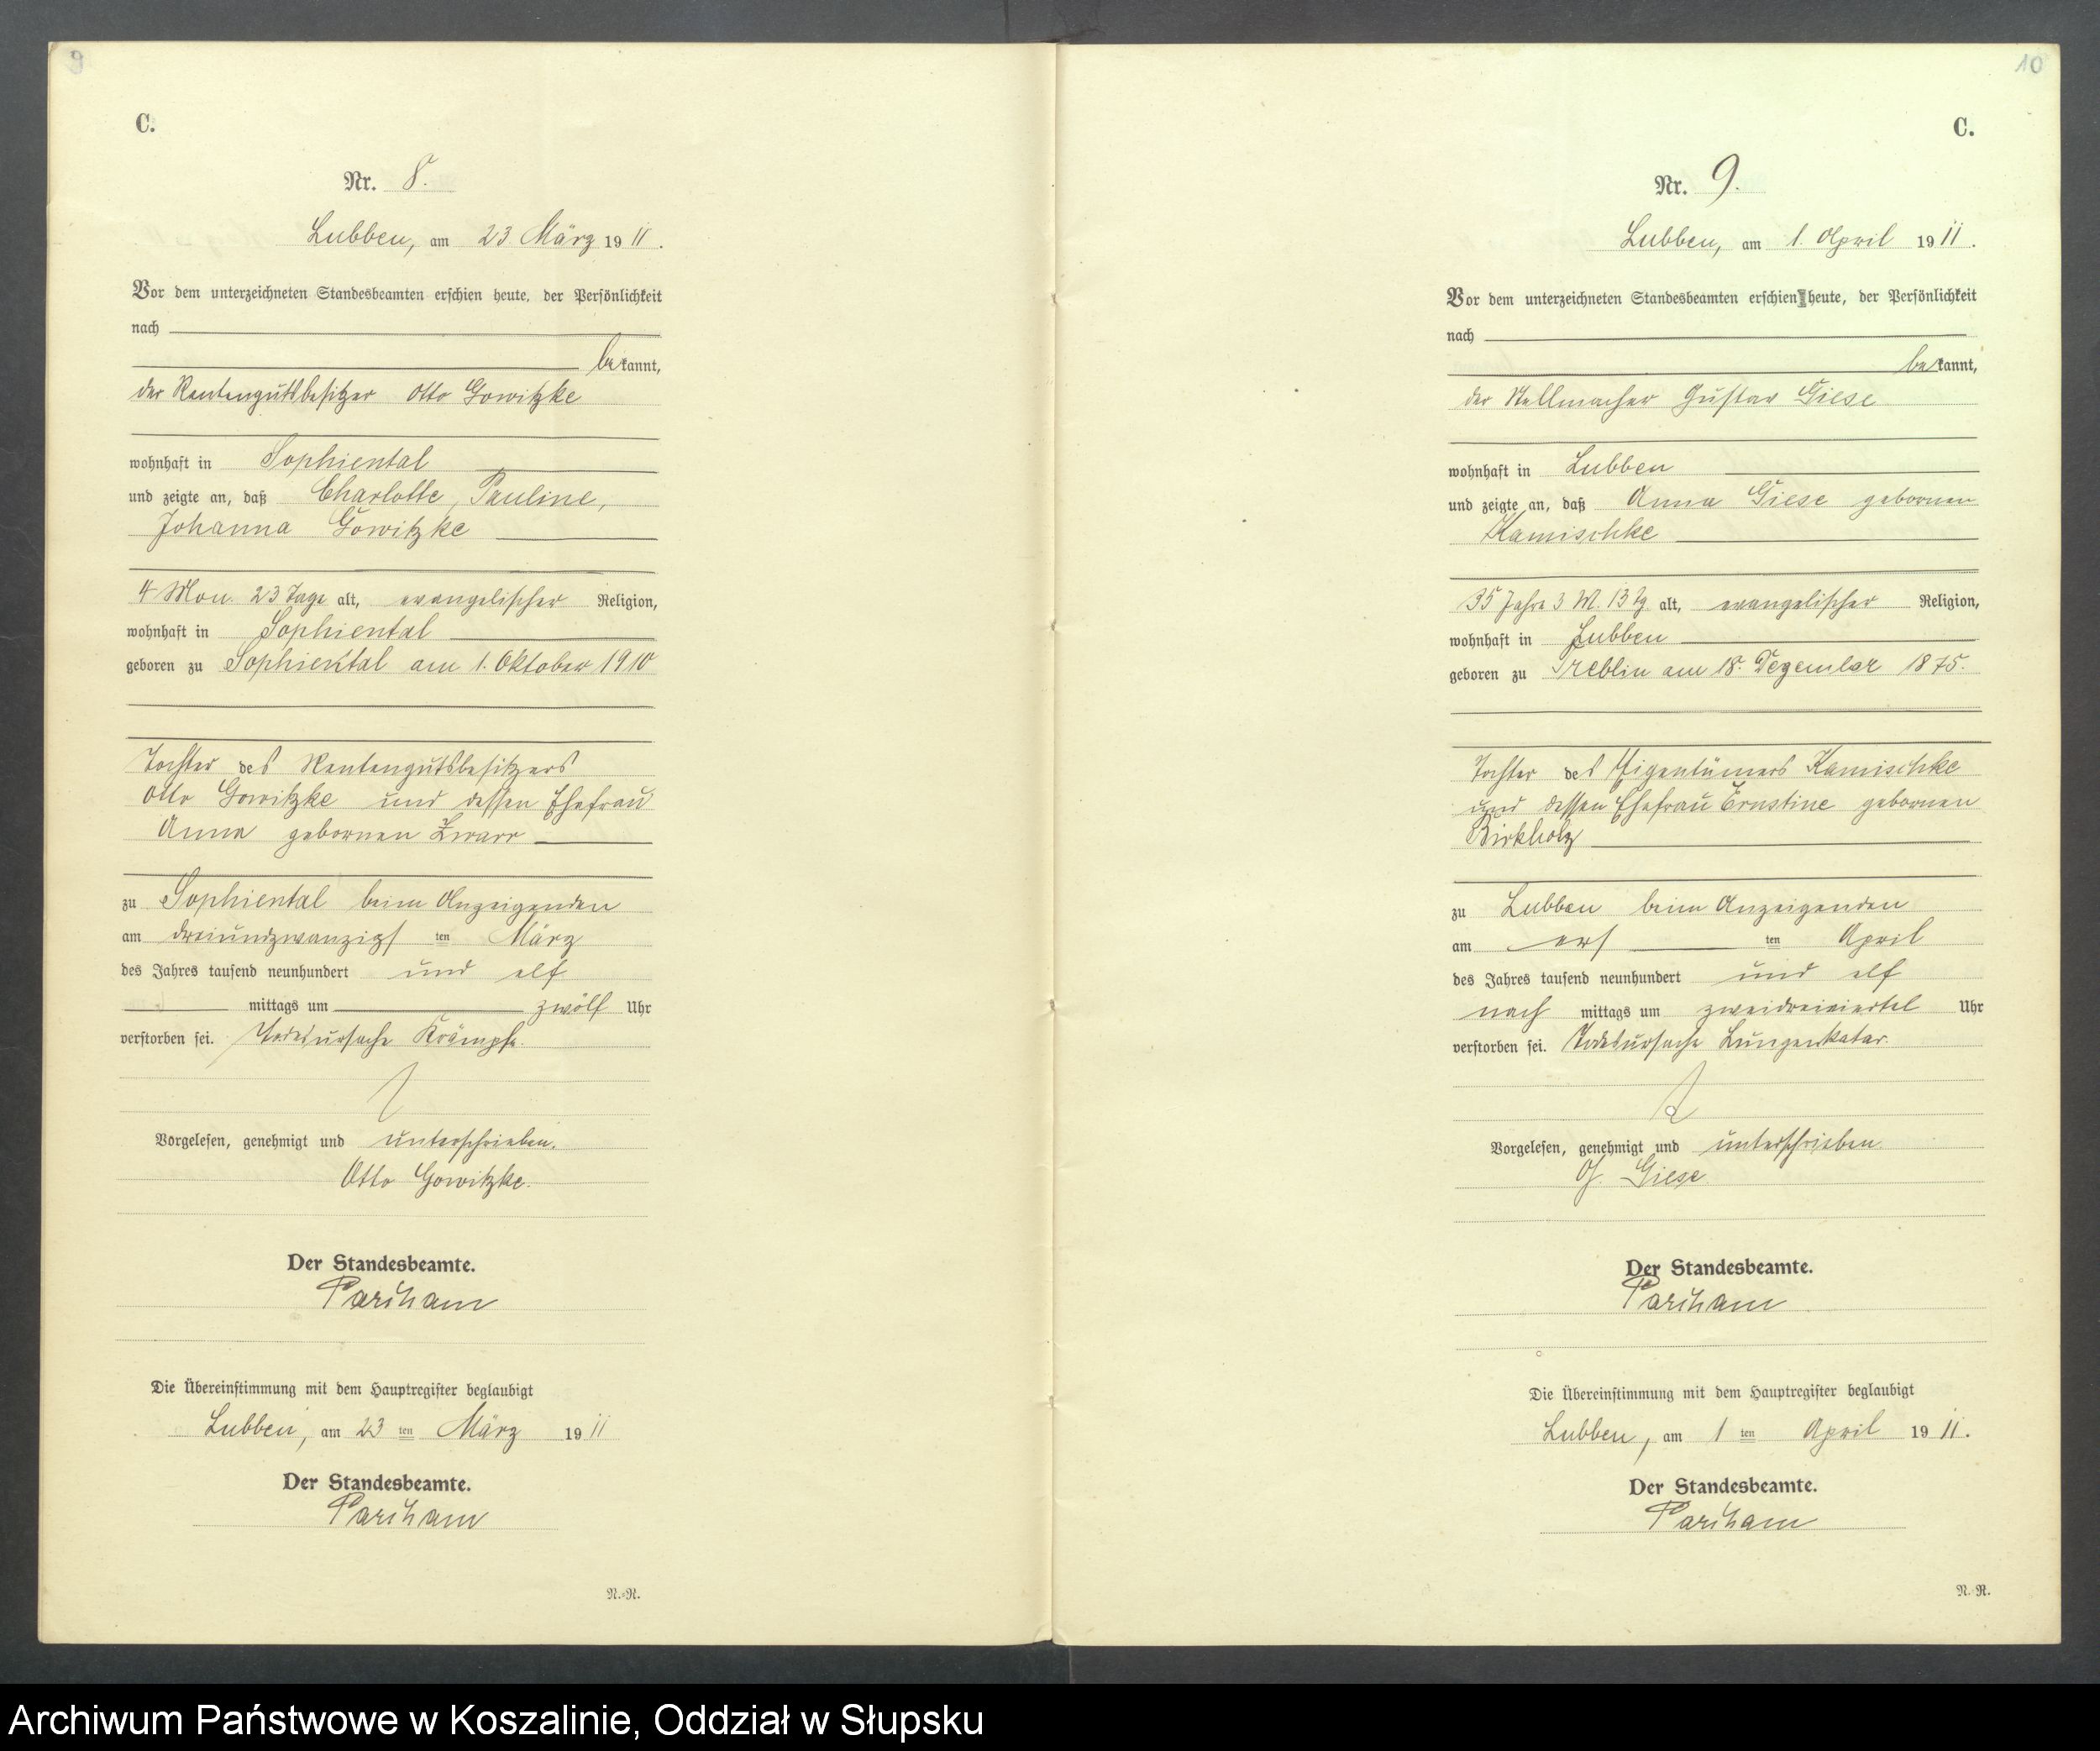 9
C.
Nr. 8.
Lubben, am 23 März 1911.
Vor dem unterzeichneten Standesbeamten erschien heute, der Persönlichkeit
nach
bekannt,
der Rentengutsbesitzer Otto Gowitzke
wohnhaft in Sophiental
und zeigte an, daß Charlotte, Pauline,
Johanna Gowitzke
4 Mon. 23 Tage alt, evangelischer Religion,
wohnhaft in Sophiental
geboren zu Sophiental am 1. Oktober 1910
Tochter des Rentengutsbesitzers
Otto Gowitzke und dessen Ehefrau
Anna gebornen Zwarr
zu Sophiental beim Anzeigenden
am dreiundzwanzigsten März
des Jahres tausend neunhundert und elf
mittags um zwölf Uhr
verstorben sei. Todesursache Krämpfe.
Vorgelesen, genehmigt und unterschrieben.
Otto Gowitzke.
Der Standesbeamte.
Die Übereinstimmung mit dem Hauptregister beglaubigt
Lubben, am 23 ten März 1911
Der Standesbeamte.
N.=R.
10
C.
Nr. 9.
Lubben, am 1. April 1911.
Vor dem unterzeichneten Standesbeamten erschien heute, der Persönlichkeit
nach
bekannt,
der Stellmacher Gustav Giese
wohnhaft in Lubben
und zeigte an, daß Anna Giese gebornen
Kamischke
35 Jahre 3 M. 13 Tg. alt, evangelischer Religion,
wohnhaft in Lubben
geboren zu Treblin am 18. Dezember 1875.
Tochter des Eigentümers Kamischke
und dessen Ehefrau Ernstine gebornen
Birkholz
zu Lubben beim Anzeigenden
am ersten April
des Jahres tausend neunhundert und elf
nach mittags um zweidreiviertel Uhr
verstorben sei. Todesursache Lungenkatar.
Vorgelesen, genehmigt und unterschrieben.
G. Giese
Der Standesbeamte.
Die Übereinstimmung mit dem Hauptregister beglaubigt
Lubben, am 1 ten April 1911.
Der Standesbeamte.
N.=R.
Archiwum Państwowe w Koszalinie, Oddział w Słupsku